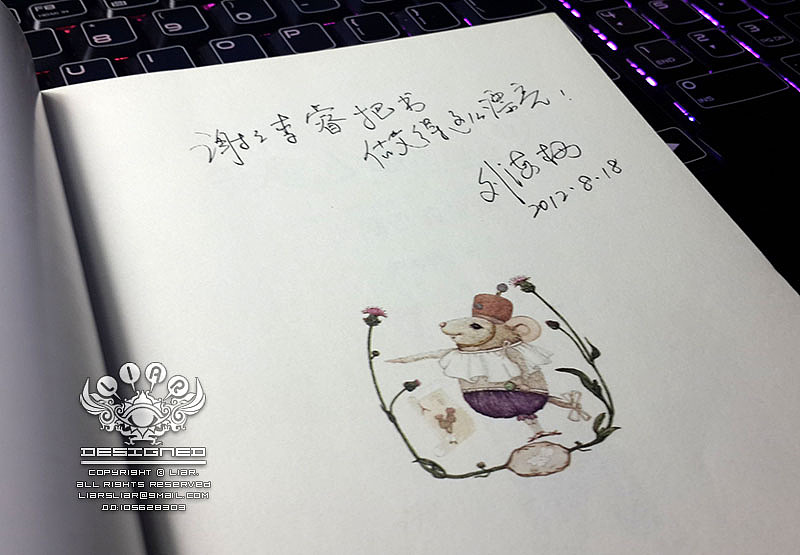 谢谢李睿把书
做得这么漂亮!
刘海栖
2012.8.18
LIAR
DESIGNED
COPYRIGHT © LIAR.
ALL RIGHTS RESERVED
LIARSLIAR@GMAIL.COM
QQ.105628303
U
I
O
P
END
0
INS